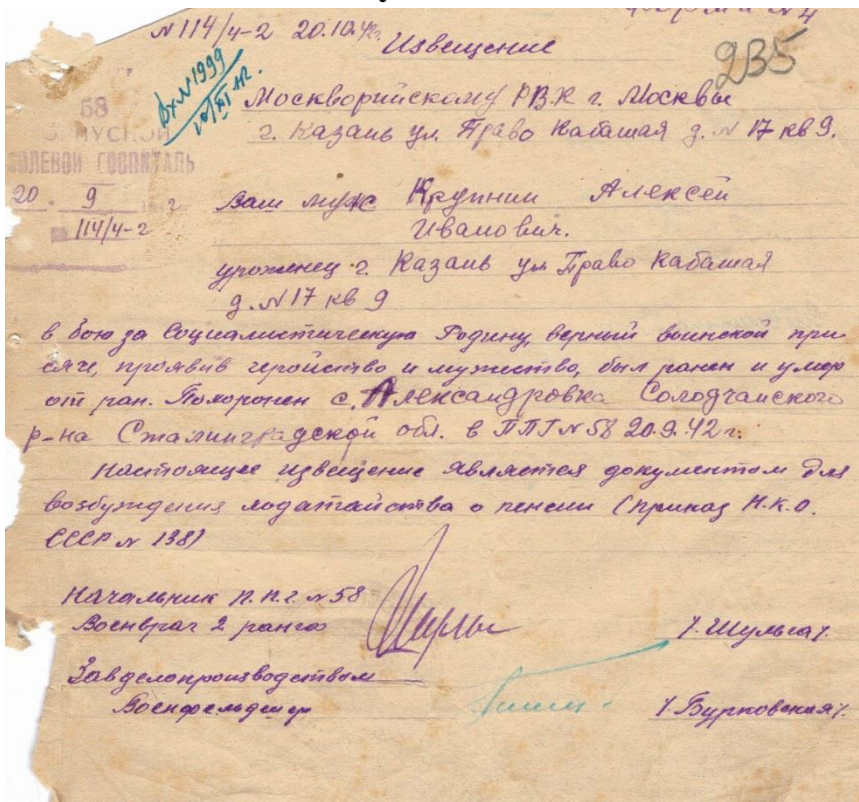 форма №4
№114/4-2 20.10.42г.
Извещение
235
вх №1999
58
ПОЛЕВОЙ ГОСПИТАЛЬ
20 9 2
114/4-2
Москворийскому РВК г. Москвы
г. Казань ул. Право Кабашая д. № 17 кв 9.
Ваш муж Крупнин Алексей
Иванович.
уроженец г. Казань ул Право Кабашая
д. №17 кв 9
в бою за Социалистическую Родину, верный воинской при-
сяге, проявив геройство и мужество, был ранен и умер
от ран. Похоронен с. Александровка Солодчанского
р-на Сталинградской обл. в ППГ №58 20.9.42 г.
Настоящее извещение является документом для
возбуждения ходатайства о пенсии (приказ Н.К.О.
СССР № 138)
Начальник п.п.г. №58
Военврач 2 ранга
/. Шульга/.
Завделопроизводством
Военфельдшер
/. Бурковская/.